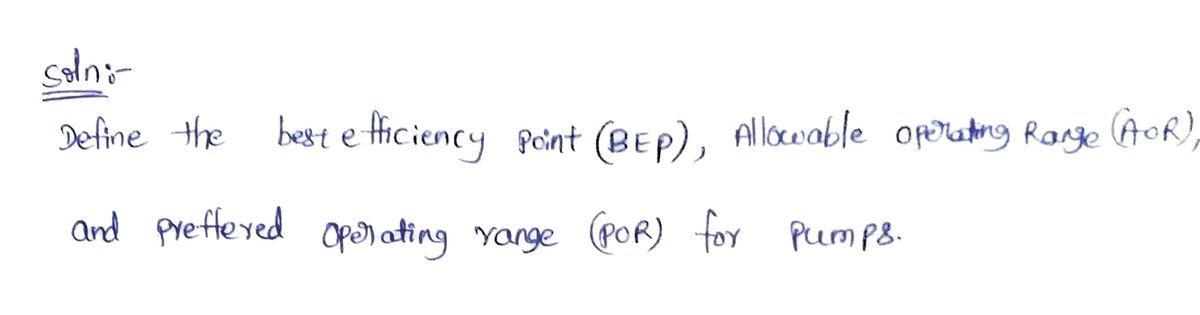 Soln:-
Define the best efficiency Point (BEP), Allowable operating Range (AOR),
and preffered operating range (POR) for pumps.